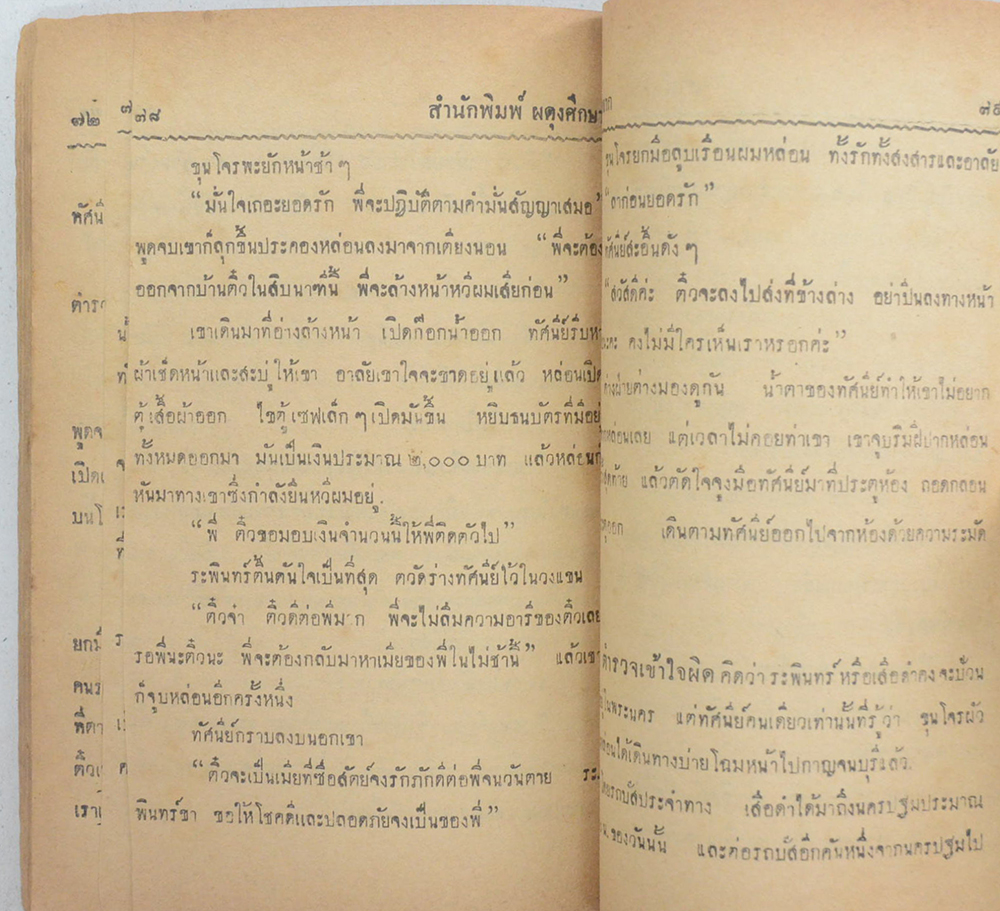 ๗๒
ทัศนี
ตำร
พูดจ
เปิด
บนโ
ยกมื
คนร
พี่ตา
ติ๋วเ
เราเ
๗
๓๘ สำนักพิมพ์ ผดุงศึกษา
ขุนโจรพะยักหน้าช้า ๆ
“ มั่นใจเถอะยอดรัก พี่จะปฏิบัติตามคำมั่นสัญญาเสมอ”
พูดจบเขาก็ลุกขึ้นประคองหล่อนลงมาจากเตียงนอน “ พี่จะต้อง
ออกจากบ้านติ๋วในสิบนาฑีนี้ พี่จะล้างหน้าหวีผมเสียก่อน”
เขาเดินมาที่อ่างล้างหน้า เปิดก๊อกน้ำออก ทัศนีย์รีบห
ผ้าเช็ดหน้าและสะบู่ให้เขา อาลัยเขาใจจะขาดอยู่แล้ว หล่อนเปิด
ตู้เสื้อผ้าออก ไขตู้เซฟเล็ก ๆ เปิดมันขึ้น หยิบธนบัตรที่มีอยู่
ทั้งหมดออกมา มันเป็นเงินประมาณ ๒,๐๐๐ บาท แล้วหล่อนก็
หันมาทางเขาซึ่งกำลังยืนหวีผมอยู่.
“ พี่ ติ๋วขอมอบเงินจำนวนนี้ให้พี่ติดตัวไป”
ระพินทร์ตื้นตันใจเป็นที่สุด ตวัดร่างทัศนีย์ไว้ในวงแขน
“ ติ๋วจ๋า ติ๋วดีต่อพี่มาก พี่จะไม่ลืมความอารีของติ๋วเลย
รอพี่นะติ๋วนะ พี่จะต้องกลับมาหาเมียของพี่ในไม่ช้านี้” แล้วเขา
ก็จูบหล่อนอีกครั้งหนึ่ง
ทัศนีย์กราบลงบนอกเขา
“ ติ๋วจะเป็นเมียที่ซื่อสัตย์จงรักภักดีต่อพี่จนวันตาย ระ
พินทร์ขา ขอให้โชคดีและปลอดภัยจงเป็นของพี่ ”
ขุนโจรยกมือลูบเรือนผมหล่อน ทั้งรักทั้งสงสารและอาลัย
“ลาก่อนยอดรัก”
ทัศนีย์สะอื้นดัง ๆ
“สวัสดีค่ะ ติ๋วจะลงไปส่งที่ข้างล่าง อย่าปีนลงทางหน้า
นะคะ คงไม่มีใครเห็นเราหรอกค่ะ”
ต่างฝ่ายต่างมองดูกัน น้ำตาของทัศนีย์ทำให้เขาไม่อยาก
กหล่อนเลย แต่เวลาไม่คอยท่าเขา เขาจูบริมฝีปากหล่อน
สุดท้าย แล้วตัดใจจูงมือทัศนีย์มาที่ประตูห้อง ถอดกลอน
ตูออก เดินตามทัศนีย์ออกไปจากห้องด้วยความระมัด
ตำรวจเข้าใจผิด คิดว่า ระพินทร์ หรือเสือดำคงจะป้วน
ในพระนคร แต่ทัศนีย์คนเดียวเท่านั้นที่รู้ว่า ขุนโจรผัว
ล่อนได้เดินทางบ่ายโฉมหน้าไปกาญจนบุรีแล้ว.
ยรถบัสประจำทาง เสือดำได้มาถึงนครปฐมประมาณ
น. ของวันนั้น และต่อรถบัสอีกคันหนึ่งจากนครปฐมไป